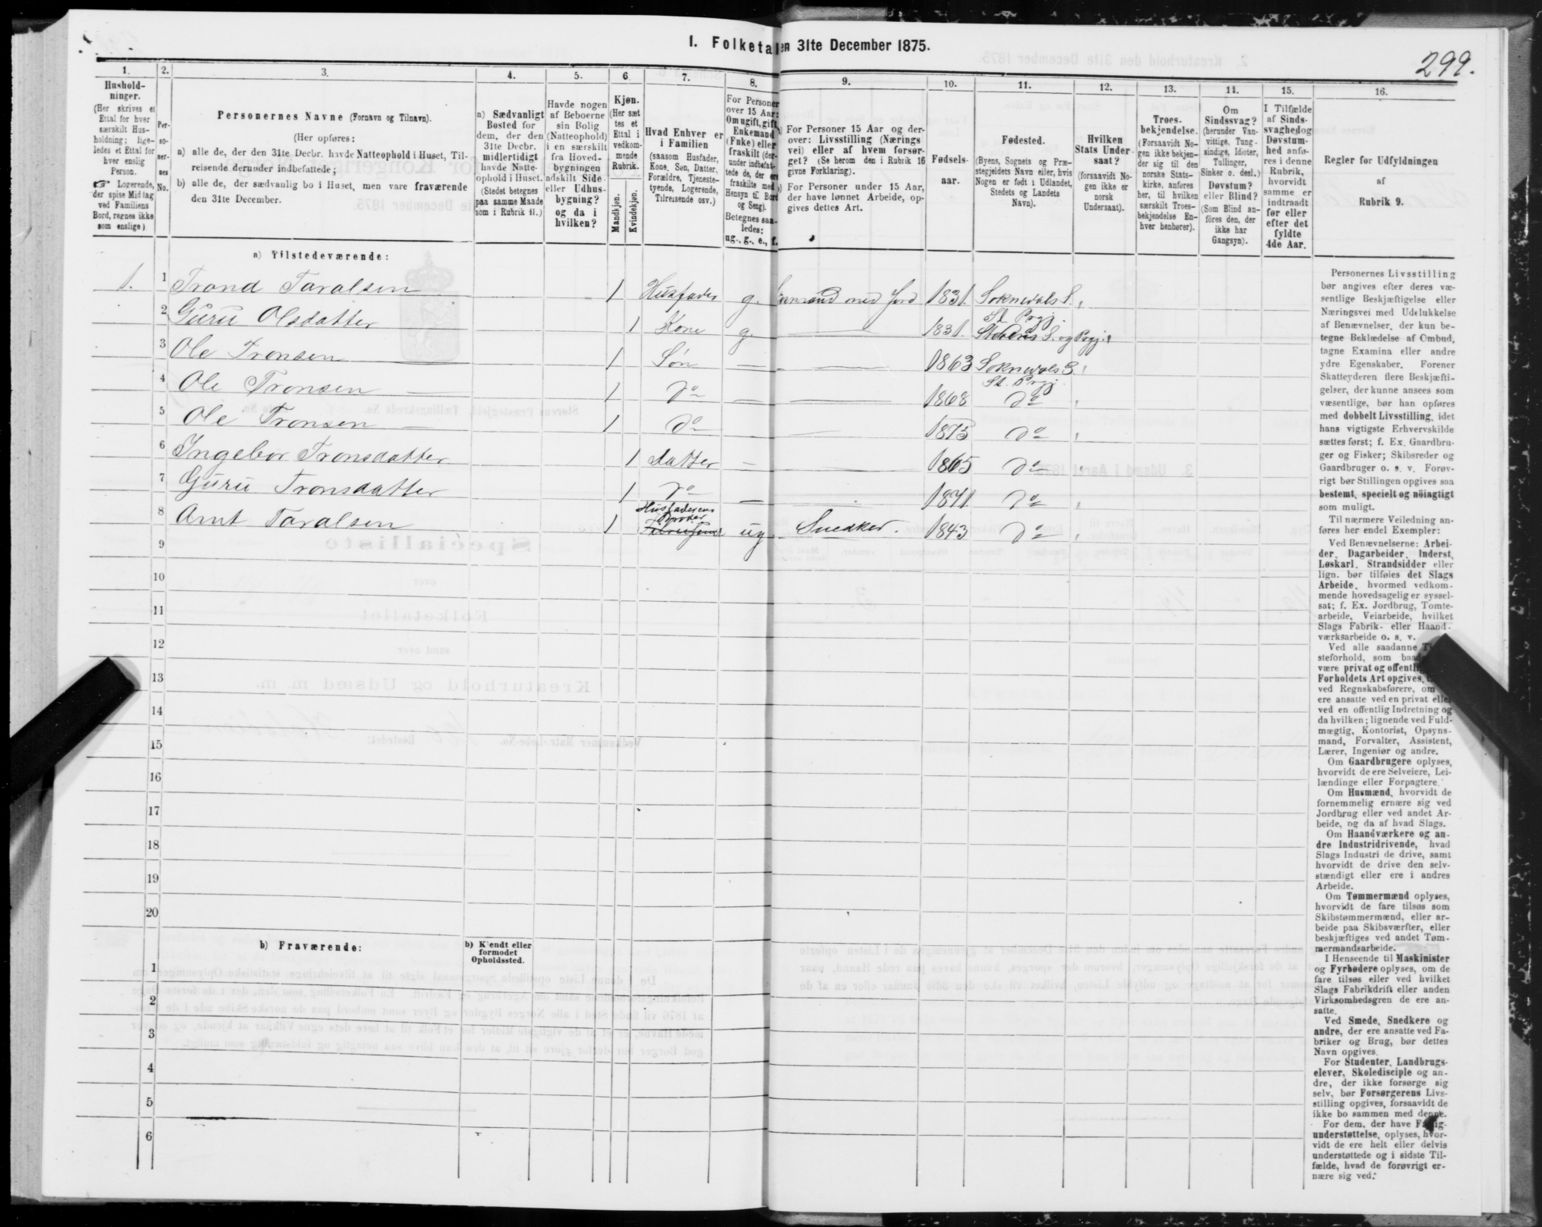 I. Folketallet den 31te December 1875.
299.
1.
Hushold-
ninger.
(Her skrives et
Ettal for hver
særskilt Hus-
holdning; lige-
ledes et Ettal for
hver enslig
Person.
☞ Logerende,
der spise Middag
ved Familiens
Bord, regnes ikke
som enslige)
2.
Per-
so-
ner-
nes
No.
3.
Personernes Navne (Fornavn og Tilnavn).
(Her opføres:
a) alle de, der den 31te Decbr. havde Natteophold i Huset, Til-
reisende derunder indbefattede;
b) alle de, der sædvanlig bo i Huset, men vare fraværende
den 31te December.
4.
a) Sædvanligt
Bosted for
dem, der den
31te Decbr.
midlertidigt
havde Natte-
ophold i Huset.
(Stedet betegnes
paa samme Maade
som i Rubrik 11.)
5.
Havde nogen
af Beboerne
sin Bolig
(Natteophold)
i en særskilt
fra Hoved-
bygningen
adskilt Side-
eller Udhus-
bygning?
og da i
hvilken?
6.
Kjøn.
(Her sæt-
tes et
Ettal i
vedkom-
mende
Rubrik.
Mandkjøn.
Kvindekjøn.
7.
Hvad Enhver er
i Familien
(saasom Husfader,
Kone, Søn, Datter,
Forældre, Tjeneste-
tyende, Logerende,
Tilreisende osv.)
8.
For Personer
over 15 Aar:
Om ugift, gift,
Enkemand
(Enke) eller
fraskilt
Betegnes saa-
ledes:
ug., g., e., f.
9.
For Personer 15 Aar og der-
over: Livsstilling (Nærings
vei) eller af hvem forsør-
get? (Se herom den i Rubrik 16
givne Forklaring).
For Personer under 15 Aar,
der have lønnet Arbeide, op-
gives dettes Art.
10.
Fødsels-
aar.
11.
Fødested.
(Byens, Sognets og Præ-
stegjeldets Navn eller, hvis
Nogen er født i Udlandet,
Stedets og Landets
Navn).
12.
Hvilken
Stats Under-
saat?
(forsaavidt No-
gen ikke er
norsk
Undersaat).
13.
Troes-
bekjendelse.
(Forsaavidt No-
gen ikke bekjen-
der sig til den
norske Stats-
kirke, anføres
her, til hvilken
særskilt Troes-
bekjendelse En-
hver henhører).
14.
Om
Sindssvag?
(herunder Van-
vittige, Tung-
sindige, Idioter,
Tullinger,
Sinker o. desl.)
Døvstum?
eller Blind?
(Som Blind an-
føres den, der
ikke har
Gangsyn).
15.
I Tilfælde
af Sinds-
svaghed og
Døvstum-
hed anfø-
res i denne
Rubrik,
hvorvidt
samme er
indtraadt
før eller
efter det
fyldte
4de Aar.
16.
Regler for Udfyldningen
af
Rubrik 9.
a) Tilstedeværende:
1. 1 Trond Taralsen 1 Husfader g. med Jord 1831. Soknedals S.
St. Prgj.
2 Guru Olsdatter 1 Kone g. 1831. Størens S. og Prgj.
3 Ole Tronsen 1 Søn 1863 Soknedals S.
St. Prgj.
4 Ole Tronsen 1 Do 1868 Do
5 Ole Tronsen 1 Do 1875 Do
6 Ingebor Tronsdatter 1 Datter 1865 Do
7 Guru Tronsdatter 1 Do 1871. Do
Husfaderens
Broder
8 Arnt Taralsen 1 ug. Snedker. 1843 Do
9
10
11
12
13
14
15
16
17
18
19
20
b) Fraværende:
b) Kjendt eller
formodet
Opholdssted.
1
2
3
4
5
6
Personernes Livsstilling
bør angives efter deres væ-
sentlige Beskjæftigelse eller
Næringsvei med Udelukkelse
af Benævnelser, der kun be-
tegne Beklædelse af Ombud,
tagne Examina eller andre
ydre Egenskaber. Forener
Skatteyderen flere Beskjæfti-
gelser, der kunne ansees som
væsentlige, bør han opføres
med dobbelt Livsstilling, idet
hans vigtigste Erhvervskilde
sættes først; f. Ex. Gaardbru-
ger og Fisker; Skibsreder og
Gaardbruger o. s. v. Forøv-
rigt bør Stillingen opgives saa
bestemt, specielt og nøiagtigt
som muligt.
Til nærmere Veiledning an-
føres her endel Exempler:
Ved Benævnelserne: Arbei-
der, Dagarbeider, Inderst,
Løskarl, Strandsidder eller
lign. bør tilføies det Slags
Arbeide, hvormed vedkom-
mende hovedsagelig er syssel-
sat; f. Ex. Jordbrug, Tomte-
arbeide, Veiarbeide, hvilket
Slags Fabrik- eller Haand-
værksarbeide o. s. v.
Ved alle saadanne
steforhold, som
være privat og offentl
Forholdets Art opgives,
ved Regnskabsførere, om
ere ansatte ved en privat eller
ved en offentlig Indretning og
da hvilken; lignende ved Fuld-
mægtig, Kontorist, Opsyns-
mand, Forvalter, Assistent,
Lærer, Ingeniør og andre.
Om Gaardbrugere oplyses,
hvorvidt de ere Selveiere, Lei-
lændinge eller Forpagtere.
Om Husmænd, hvorvidt de
fornemmelig ernære sig ved
Jordbrug eller ved andet Ar-
beide, og da af hvad Slags.
Om Haandværkere og an-
dre Industridrivende, hvad
Slags Industri de drive, samt
hvorvidt de drive den selv-
stændigt eller ere i andres
Arbeide.
Om Tømmermænd oplyses,
hvorvidt de fare tilsøs som
Skibstømmermænd, eller ar-
beide paa Skibsværfter, eller
beskjæftiges ved andet Tøm-
mermandsarbeide.
I Henseende til Maskinister
og Fyrbødere oplyses, om de
fare tilsøs eller ved hvilket
Slags Fabrikdrift eller anden
Virksomhedsgren de ere an-
satte.
Ved Smede, Snedkere og
andre, der ere ansatte ved Fa-
briker og Brug, bør dettes
Navn opgives.
For Studenter, Landbrugs-
elever, Skoledisciple og an-
dre, der ikke forsørge sig
selv, bør Forsørgerens Livs-
stilling opgives, forsaavidt de
ikke bo sammen med denne.
For dem, der have Fattig-
understøttelse, oplyses, hvor-
vidt de ere helt eller delvis
understøttede og i sidste Til-
fælde, hvad de forøvrigt er-
nære sig ved.